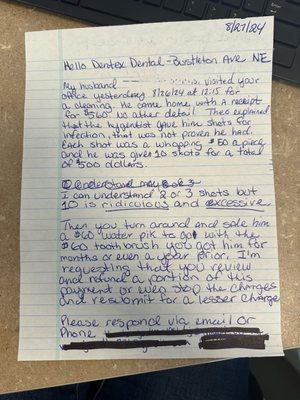 8/27/24
Hello Dentex Dental - Bustleton Ave NE
My husband visited your
office yesterday 8/26/24 at 12:15 for
a cleaning. He came home with a receipt
for $560. No other detail. Then explained
that the hygientist gave him shots for
infection, that was not proven he had.
Each shot was a whopping $50 a piece
and he was given 10 shots for a total
of 500 dollars.
I can understand 2 or 3 shots but
10 is ridiculous and excessive.
Then you turn around and sale him
a $60 water pik to go with the
$60 toothbrush you got him for
months or even a year prior. I'm
requesting that you review
and refund a portion of this
payment or stop the charges
and resubmit for a lesser charge
Please respond via email or
Phone